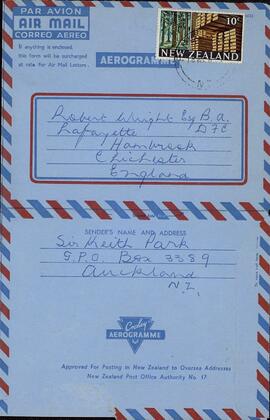 PAR AVION
AIR MAIL
CORREO AEREO
If anything is enclosed,
this form will be surcharged
at rate for Air Mail Letters.
10c
NEW ZEALAND
AEROGRAMME
Robert Wright Esq B.A.
Lafayette DFC
Hambrook
Chichester
England
SENDER'S NAME AND ADDRESS
Sir Keith Park
G.P.O. Box 3389
Auckland
N.Z.
Croxley
AEROGRAMME
Approved for Posting in New Zealand to Overseas Addresses
New Zealand Post Office Authority No. 17